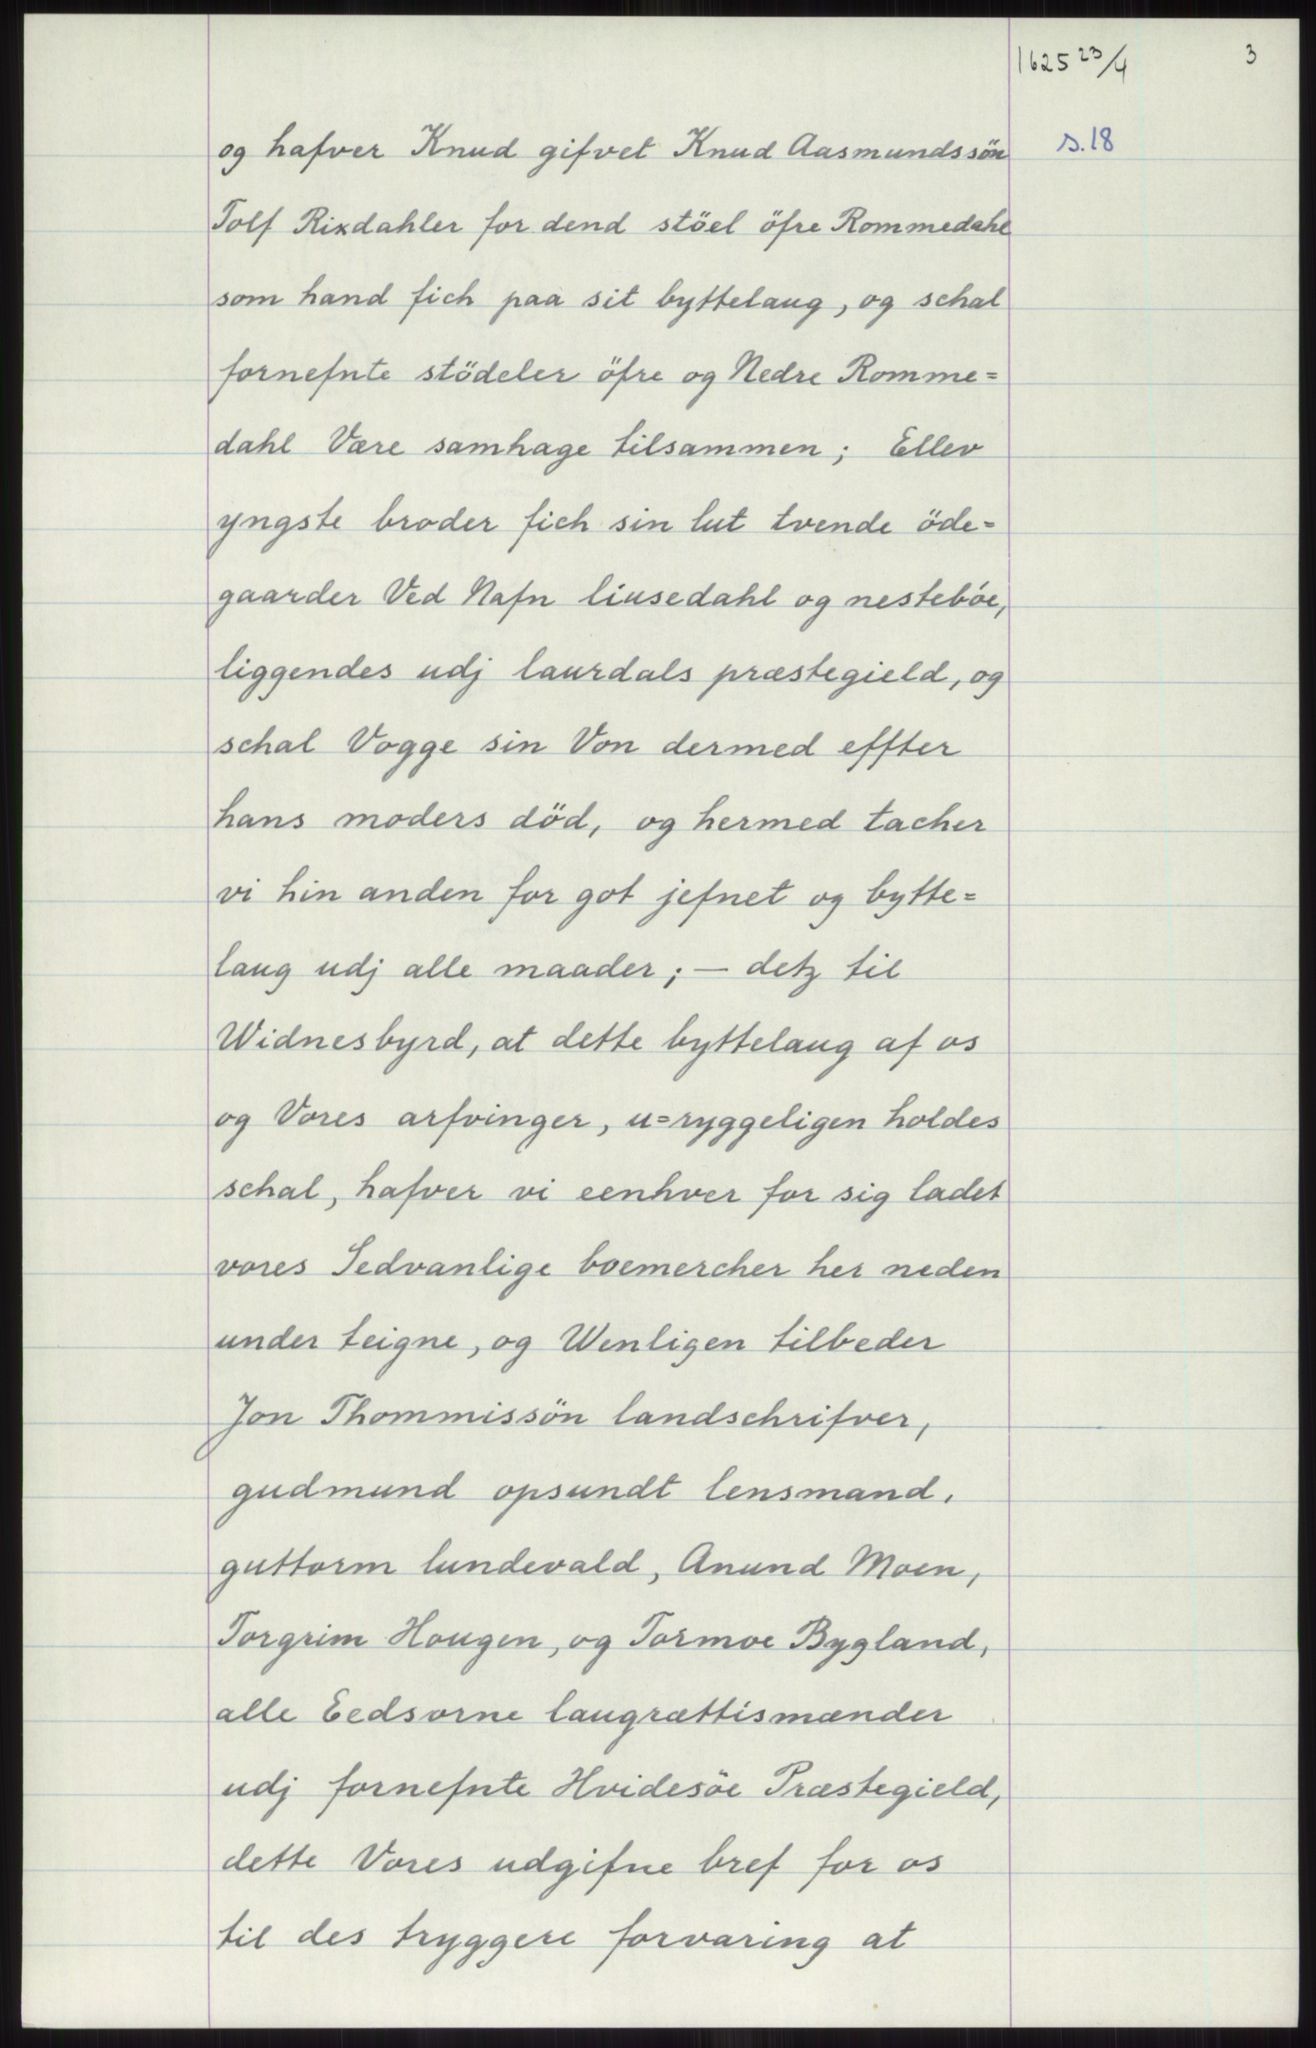 1625 23/4
3
og hafver Knud gifvet Knud Aasmundssön
s.18
Tolf Rixdahler for dend stöel öfre Rommedahl
som hand fich paa sit byttelaug, og schal
fornefnte stödeler öfre og Nedre Romme=
dahl Være samhage tilsammen; Ellev
yngste broder fich sin lut tvende öde=
gaarder Ved Nafn liusedahl og nestebóe,
liggendes udj laurdals præstegield, og
schal Vogge sin Von dermed effter
hans moders död, og hermed tacher
vi hin anden for got jefnet og bytte=
laug udj alle maader; — detz til
Widnesbyrd, at dette byttelaug af os
og Vores arfvinger, u=ryggeligen holdes
schal, hafver vi eenhver for sig ladet
vores Sedvanlige boemercher her neden
under teigne, og Wenligen tilbeder
Jon Thommissön landschrifver,
gudmund opsundt lensmand,
guttorm lundevald, Anund Moen,
Torgrim Hougen, og Tormoe Bygland,
alle Eedsorne laugrættismænder
udj fornefnte Hvidesöe Præstegield,
dette Vores udgifne bref for os
til des tryggere forvaring at